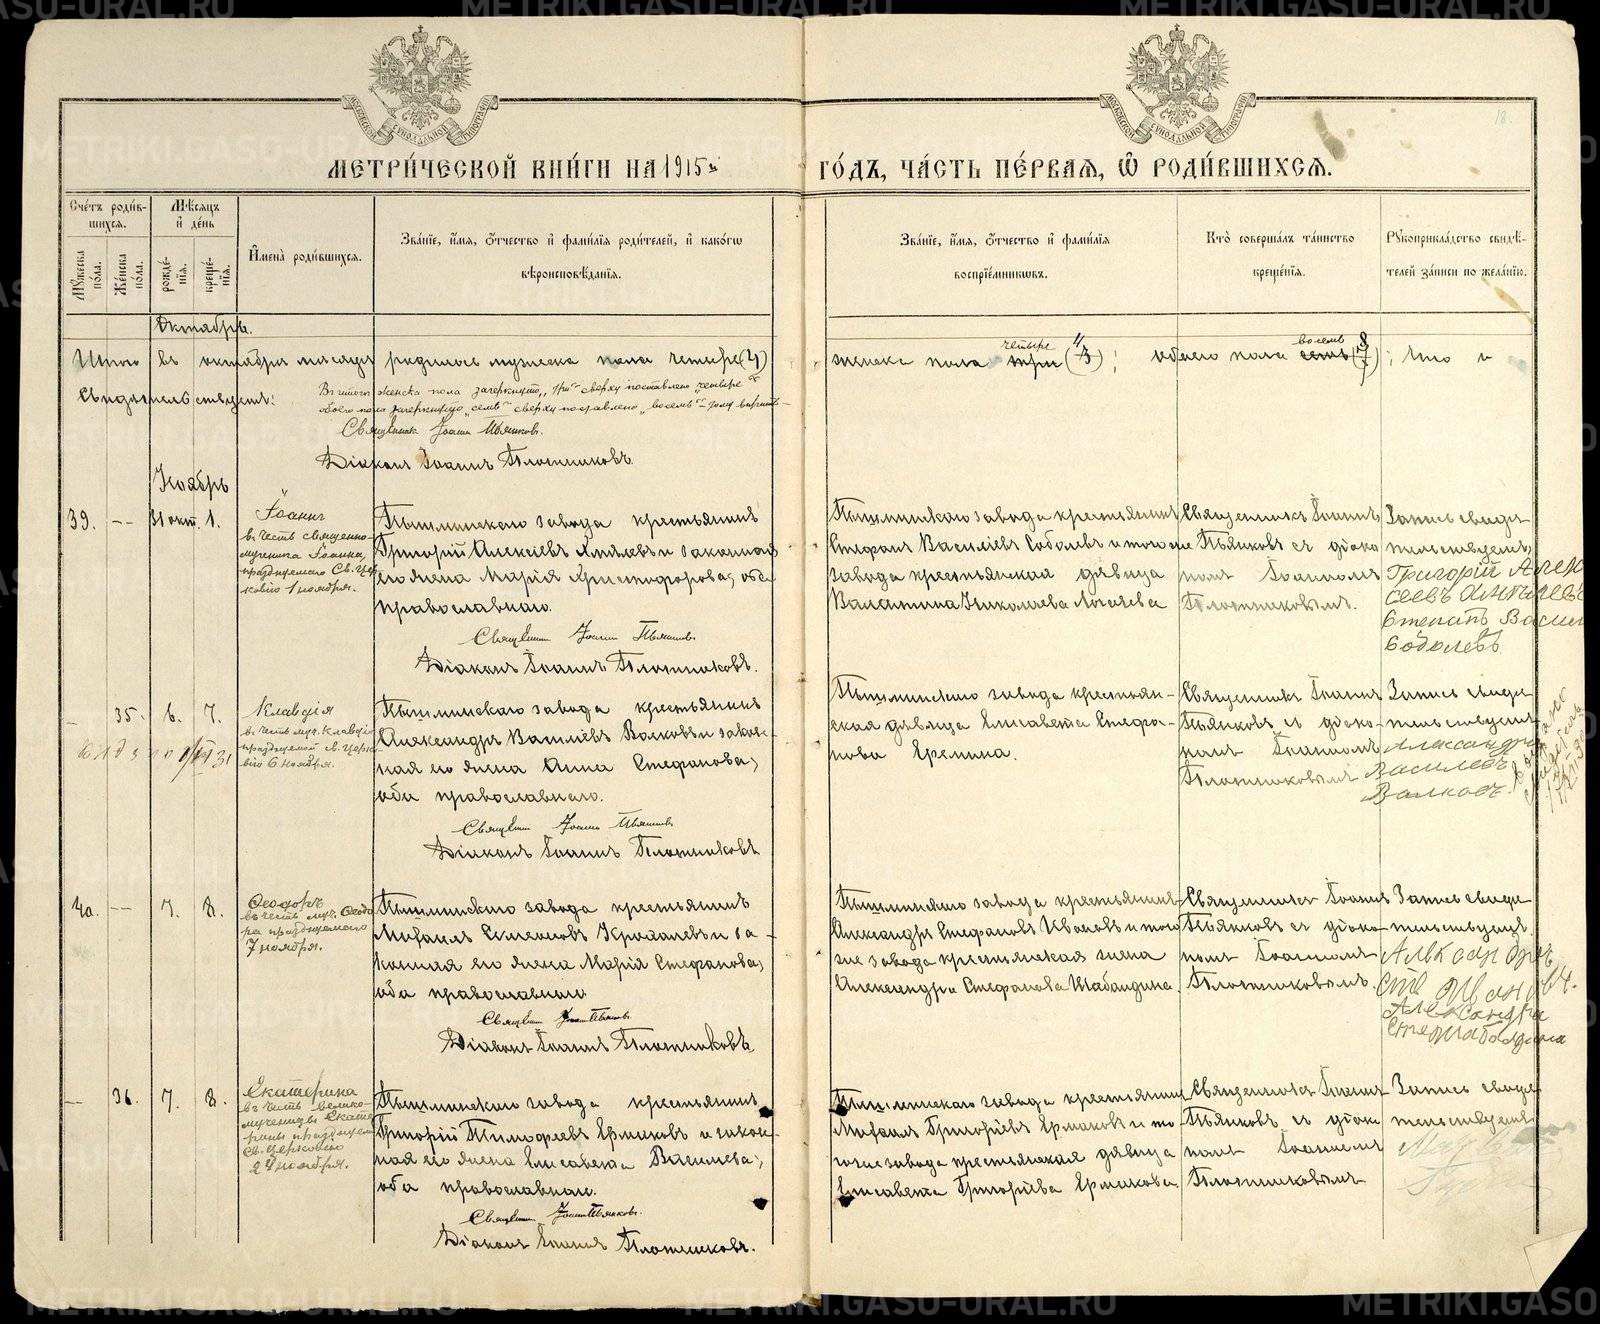 МЕТРИ́ЧЕСКОЙ КНИ́ГИ НА 1915й ГО́ДЪ, ЧА́СТЬ ПЕ́РВАЯ, Ѽ РОДИ́ВШИХСѦ.
Сче́тъ роди́в-
шихсѧ.
Мѣ́сѧцъ
и҆ де́нь
Мꙋ́жеска
по́ла.
Же́нска
по́ла.
рожде́-
нїѧ.
креще́-
нїѧ.
И҆мена̀ роди́вшихсѧ.
Зва́нїе, и҆́мѧ, ѻ҆́тчество и҆ фами́лїѧ роди́телей, и҆ како́гѡ
вѣроисповѣ́данїѧ.
Зва́нїе, и҆́мѧ, ѻ҆́тчество и҆ фами́лїѧ
воспрїе́мникѡвъ.
Кто̀ соверша́лъ та́инство
креще́нїѧ.
Рꙋкоприкла́дство свидѣ́-
телей за́писи по жела́нїю.
Октябрь.
Итого въ октябрѣ мѣсяцѣ родилось мужеска пола четыре (4)
женска пола три (3) четыре 4; обоего пола семь (7) восемь 8; что и
Свидѣтельствуемъ:
Въ итогѣ женска пола зачеркнуто „три“ сверху поставлено „четыре“
обоего пола зачеркнуто „семь“ сверху поставлено „восемь“ - тому вѣрить-
Священник Іоаннъ Пьянковъ.
Діаконъ Іоаннъ Плотниковъ.
Ноябрь
39. -- 31 окт. 1.
Іоаннъ
въ честь священно-
мученика Іоанна,
празднуемаго Св. Цер-
ковію 1 ноября.
Пышминскаго завода крестьянинъ
Григорій Алексѣевъ и законная
его жена Марія Христофорова, оба
православнаго.
Священникъ Іоаннъ Пьянковъ.
Діаконъ Іоаннъ Плотниковъ.
Пышминскаго завода крестьянинъ
Стефанъ Васильевъ Соболевъ и того же
завода крестьянская дѣвица
Валентина Николаева
Священникъ Іоаннъ
Пьянковъ съ діако-
номъ Іоанномъ
Плотниковымъ.
Запись свидѣ-
тельствуемъ
Григорій Алек
сеевъ
Степанъ Васил
Соболевъ
-- 35. 6. 7.
Клавдія
въ честь муч. Клавдіи
празднуемой Св. Церко-
вію 6 ноября.
Пышминскаго завода крестьянинъ
Александръ Васильевъ Волковъ и закон-
ная его жена Анна Стефанова,
оба православнаго.
Священникъ Іоаннъ Пьянковъ
Діаконъ Іоаннъ Плотниковъ
Пышминскаго завода крестьян-
ская дѣвица Елисавета Стефа-
нова Еремина.
Священникъ Іоаннъ
Пьянковъ съ діако-
номъ Іоанномъ
Плотниковымъ
Запись свидѣ-
тельствуемъ
Александръ
Василевъ
Валковъ
40. -- 7. 8.
Ѳеодоръ
въ честь муч. Ѳеодо-
ра празднуемаго
7 ноября.
Пышминскаго завода крестьянинъ
Михаилъ Симеоновъ и за-
конная его жена Марія Стефанова,
оба православнаго.
Священникъ Іоаннъ Пьянковъ
Діаконъ Іоаннъ Плотниковъ
Пышминскаго завода крестьянинъ
Александръ Стефановъ Ивановъ и того
же завода крестьянская жена
Александра Стефанова Шабалдина.
Священникъ Іоаннъ
Пьянковъ съ діако-
номъ Іоанномъ
Плотниковымъ.
Запись свидѣ-
тельствуемъ.
Александръ
Сте Иванов.
Александра
Сте Шабалдина
-- 36. 7. 8.
Екатерина
въ честь велико-
мученицы Екате-
рины празднуем
Св. Церковію
24 ноября.
Пышминскаго завода крестьянинъ
Григорій Тимофеевъ Ермаковъ и закон-
ная его жена Елисавета Васильева,
оба православнаго.
Священникъ Іоаннъ Пьянковъ.
Діаконъ Іоаннъ Плотниковъ.
Пышминскаго завода крестьянинъ
Михаилъ Григорьевъ Ермаковъ и то-
гоже завода крестьянская дѣвица
Елисавета Григорьева Ермакова.
Священникъ Іоаннъ
Пьянковъ съ діако-
номъ Іоанномъ
Плотниковымъ
Запись свидѣ-
тельствуемъ
18.
METRIKI.GASO-URAL.RU